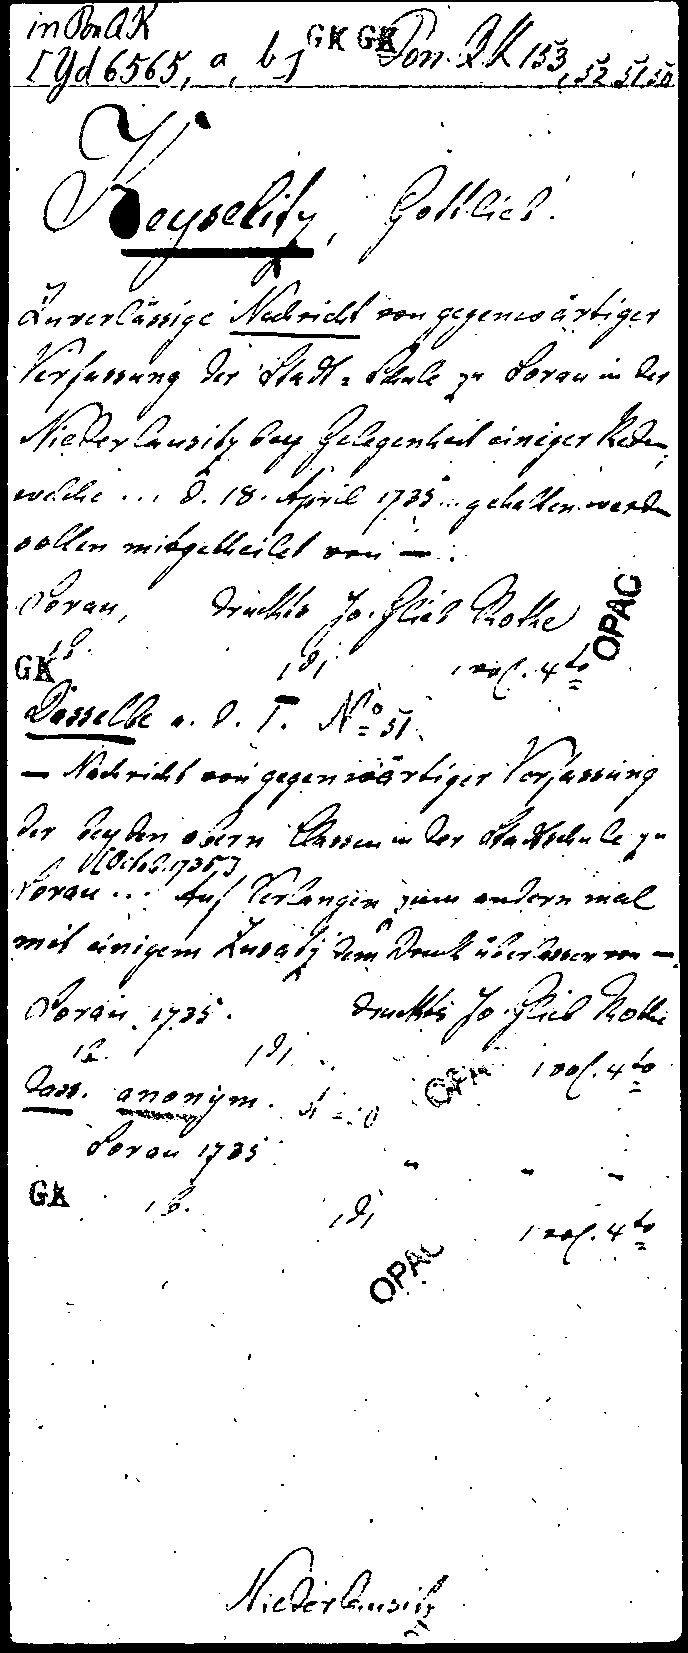 in Pon QK
[Yd 6565, a, b] GK GK Pon. QK 153, 52 51, 50
Keyselitz, Gottlieb.
Zuverlässige Nachricht von gegenwärtiger
Verfassung der Stadt=Schule zu Sorau in der
Niederlausitz bey Gelegenheit einiger Reden,
welche ... d. 18. April 1735 ... gehalten werden
sollen mitgetheilet von — .
Sorau, druckts Jo. Glieb Rothe
GK 1 vol. 4to OPAC
Dasselbe a. d. T. No 51.
— Nachricht von gegenwärtiger Verfassung
der beyden obern Classen in der Stadtschule zu
[Octob. 1735]
Sorau ... Auf Verlangen zum andern mal
mit einigem Zusatz dem Druck überlassen von —.
Sorau. 1735. druckts Jo. Glieb Rothe
1 vol. 4to
Dass. anonym. OPAC
Sorau 1735 " " "
GK 1 vol. 4to
OPAC
Niederlausitz